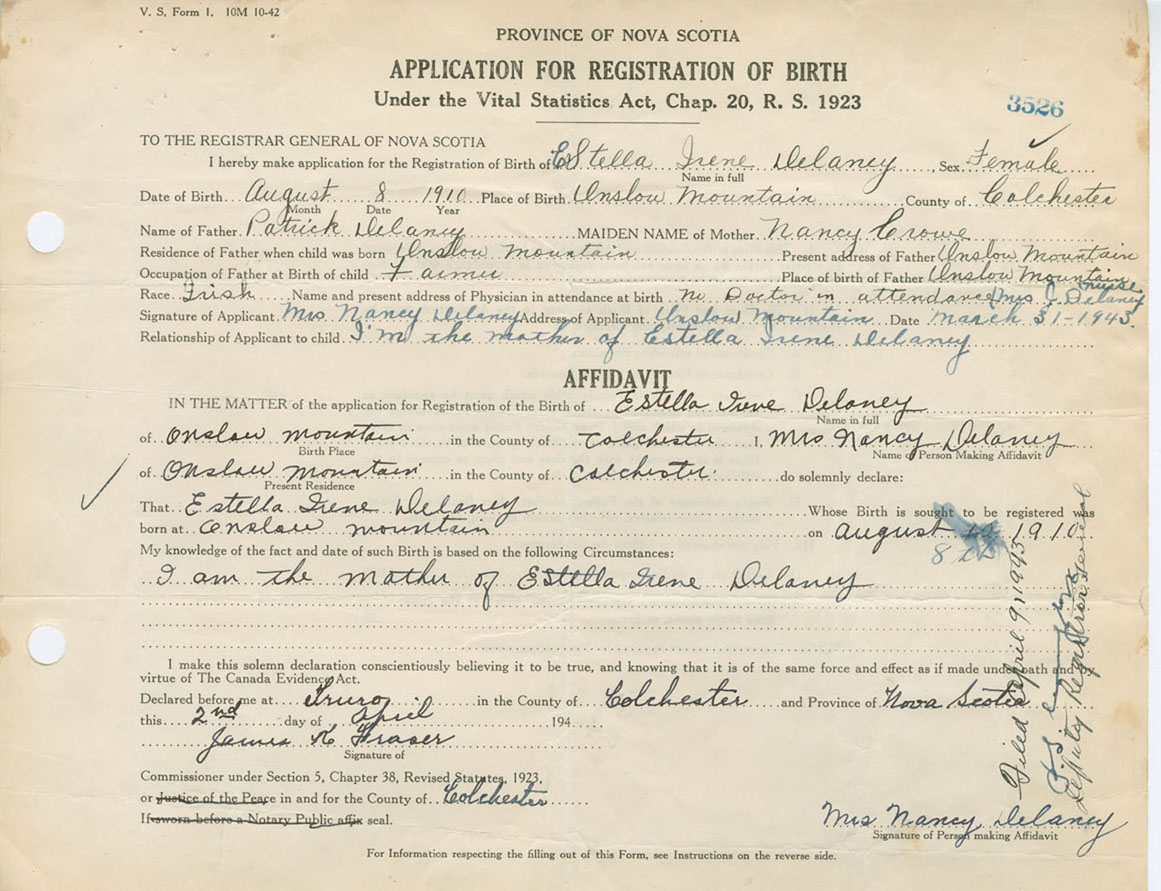 V. S. Form 1. 10M 10-42
PROVINCE OF NOVA SCOTIA
APPLICATION FOR REGISTRATION OF BIRTH
Under the Vital Statistics Act, Chap. 20, R. S. 1923
3526
TO THE REGISTRAR GENERAL OF NOVA SCOTIA
I hereby make application for the Registration of Birth of Estella Irene Delaney, Sex Female
Name in full
Date of Birth August 8 1910 Place of Birth Onslow Mountain County of Colchester
Month Date Year
Name of Father Patrick Delaney MAIDEN NAME of Mother Nancy Crowe
Residence of Father when child was born Onslow Mountain Present address of Father Onslow Mountain
Occupation of Father at Birth of child Farmer Place of birth of Father Onslow Mountain
Race Irish Name and present address of Physician in attendance at birth No Doctor in attendance Nurse Mrs J Delaney
Signature of Applicant Mrs Nancy Delaney Address of Applicant Onslow Mountain Date March 31-1943
Relationship of Applicant to child I'm the mother of Estella Irene Delaney
AFFIDAVIT
IN THE MATTER of the application for Registration of the Birth of Estella Irene Delaney
Name in full
of Onslow Mountain in the County of Colchester I, Mrs Nancy Delaney
Birth Place Name of Person Making Affidavit
of Onslow Mountain in the County of Colchester do solemnly declare:
Present Residence
That Estella Irene Delaney Whose Birth is sought to be registered was
born at Onslow Mountain on August 1910
8th
My knowledge of the fact and date of such Birth is based on the following Circumstances:
I am the mother of Estella Irene Delaney
I make this solemn declaration conscientiously believing it to be true, and knowing that it is of the same force and effect as if made under oath and by
virtue of The Canada Evidence Act.
Declared before me at Truro in the County of Colchester and Province of Nova Scotia
this 2nd day of April 194
James K Fraser
Signature of
Commissioner under Section 5, Chapter 38, Revised Statutes, 1923,
or Justice of the Peace in and for the County of Colchester
If sworn before a Notary Public affix seal.
Mrs Nancy Delaney
Signature of Person making Affidavit
For Information respecting the filling out of this Form, see Instructions on the reverse side.
Filed April 9, 1943
Deputy Registrar General